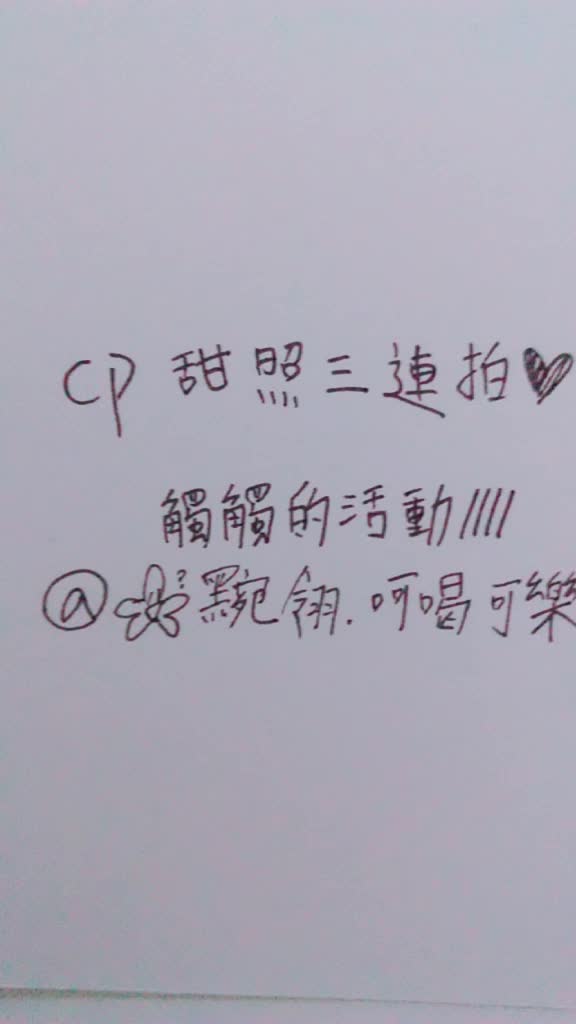 CP 甜照三連拍♥
觸觸的活動////
@ 翎.呵喝可樂